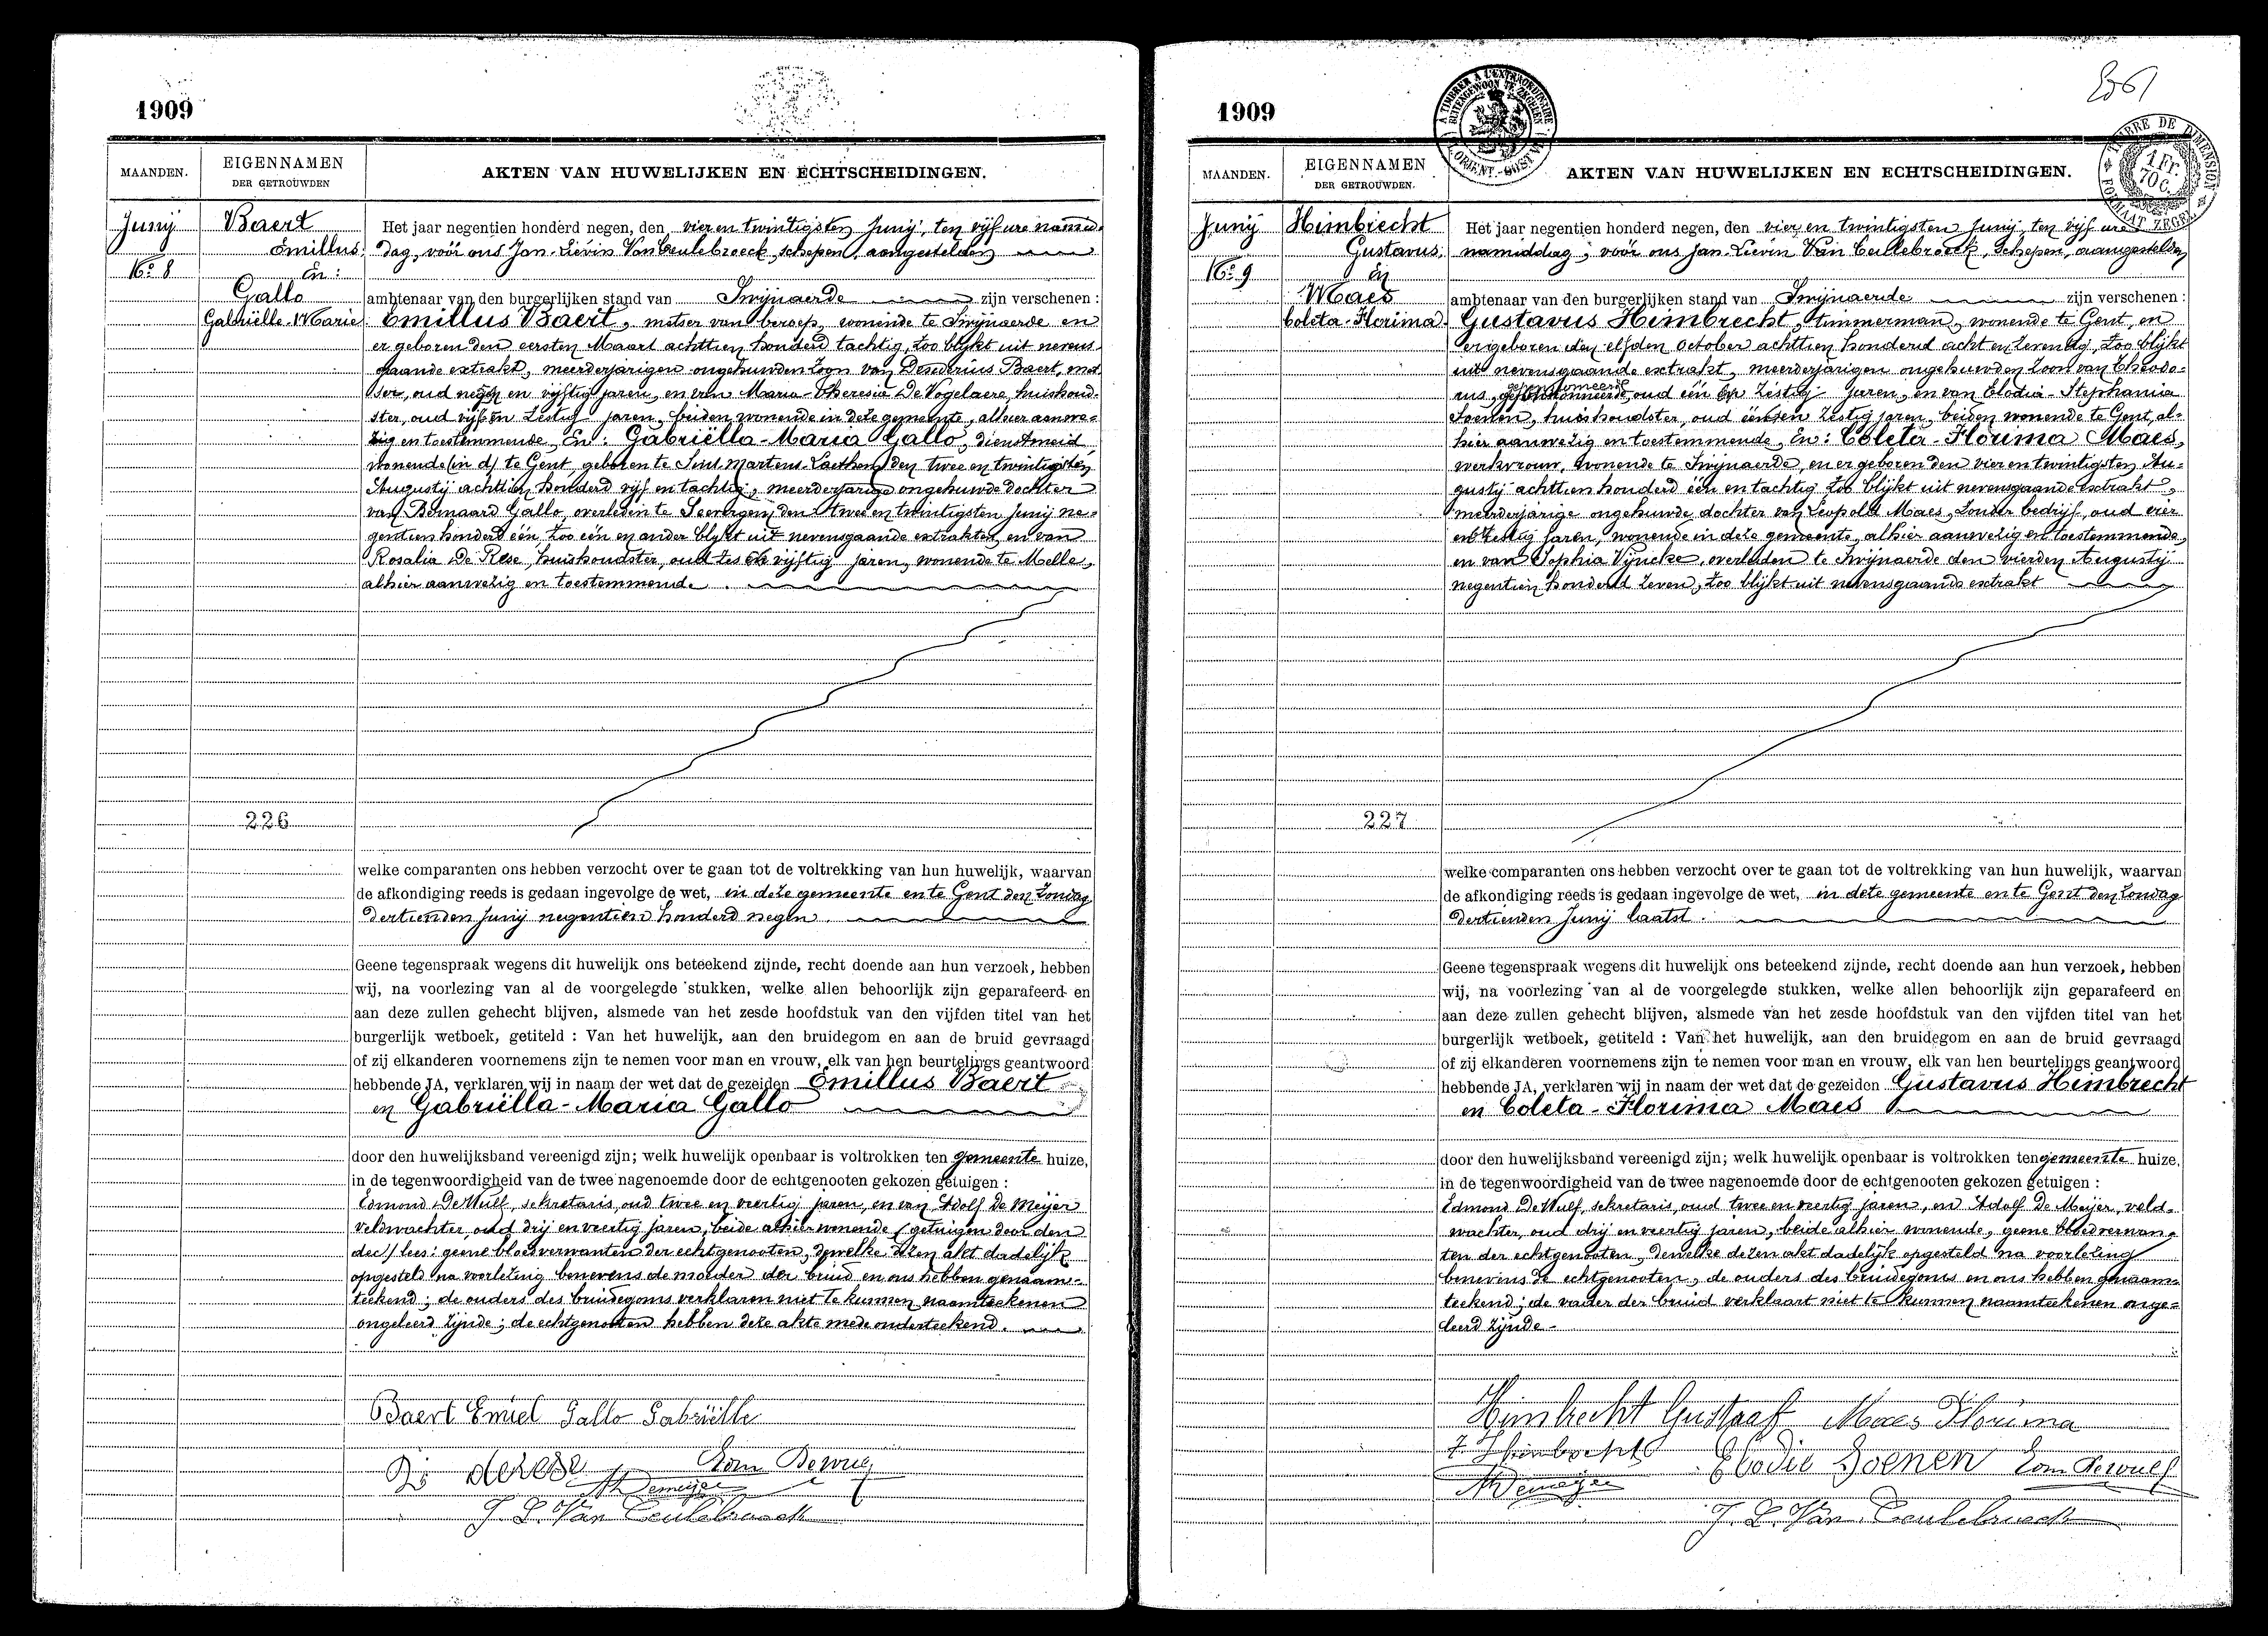 1909
MAANDEN.
EIGENNAMEN
DER GETROUWDEN
AKTEN VAN HUWELIJKEN EN ECHTSCHEIDINGEN.
Junij
No 8
Baert
Emillus
En:
Gallo
Gabriëlle-Marie
Het jaar negentien honderd negen, den vier en twintigsten Junij, ten vijf ure namid-
dag, vóór ons Jan-Lievin Van Ceulebroeck, schepen, aangestelden
ambtenaar van den burgerlijken stand van Swijnaerde zijn verschenen :
Emillus Baert, metser van beroep, wonende te Swijnaerde en
er geboren den eersten Maart achttien honderd tachtig, zoo blijkt uit nevens-
gaande extrakt, meerderjarigen ongehuwden zoon van Desiderius Baert, met-
ser, oud negen en vijftig jaren, en van Maria-Theresia De Vogelaere, huishoud-
ster, oud vijf en zestig jaren, beiden wonende in deze gemeente, alhier aanwe-
zig en toestemmende, En: Gabriëlla-Maria Gallo, dienstmeid
wonende (in d) te Gent, geboren te Sint Martens-Laethem den twee en twintigsten
Augustij achttien honderd vijf en tachtig, meerderjarige ongehuwde dochter
van Bernaard Gallo, overleden te Severgem den twee en twintigsten Junij ne-
gentien honderd één, zoo één en ander blijkt uit nevensgaande extrakten en van
Rosalia De Rese, huishoudster, oud zes en vijftig jaren, wonende te Melle,
alhier aanwezig en toestemmende.
226
welke comparanten ons hebben verzocht over te gaan tot de voltrekking van hun huwelijk, waarvan
de afkondiging reeds is gedaan ingevolge de wet, in deze gemeente en te Gent den Zondag
dertienden Junij negentien honderd negen.
Geene tegenspraak wegens dit huwelijk ons beteekend zijnde, recht doende aan hun verzoek, hebben
wij, na voorlezing van al de voorgelegde stukken, welke allen behoorlijk zijn geparafeerd en
aan deze zullen gehecht blijven, alsmede van het zesde hoofdstuk van den vijfden titel van het
burgerlijk wetboek, getiteld : Van het huwelijk, aan den bruidegom en aan de bruid gevraagd
of zij elkanderen voornemens zijn te nemen voor man en vrouw, elk van hen beurtelings geantwoord
hebbende JA, verklaren wij in naam der wet dat de gezeiden Emillus Baert
en Gabriëlla-Maria Gallo
door den huwelijksband vereenigd zijn; welk huwelijk openbaar is voltrokken ten gemeente huize,
in de tegenwoordigheid van de twee nagenoemde door de echtgenooten gekozen getuigen :
Edmond De Wulf, sekretaris, oud twee en veertig jaren, en van Adolf De Meijer
veldwachter, oud drij en veertig jaren, beide alhier wonende (getuigen door den
dec) lees: geene bloedverwanten der echtgenooten, dewelke dezen akt dadelijk
opgesteld na voorlezing benevens de moeder der bruid en ons hebben genaam-
teekend; de ouders des bruidegoms verklaren niet te kunnen naamteekenen
ongeleerd zijnde; de echtgenooten hebben deze akte mede onderteekend.
Baert Emiel Gallo Gabriëlle
derese Edm Dewulf
A Demeijer
J. L. Van Ceulebroeck
1909
MAANDEN.
EIGENNAMEN
DER GETROUWDEN.
AKTEN VAN HUWELIJKEN EN ECHTSCHEIDINGEN.
A TIMBRER A L'EXTRAORDINAIRE
BUITENGEWOON TE ZEGELEN
TIMBRE DE DIMENSION
1 Fr.
70 C.
FORMAAT ZEGEL
Junij
No 9
Heimbrecht
Gustavus.
En
Maes
Coleta-Florima
Het jaar negentien honderd negen, den vier en twintigsten Junij, ten vijf ure
namiddag, vóór ons Jan-Lievin Van Ceulebroeck, Schepen, aangestelden
ambtenaar van den burgerlijken stand van Swijnaerde zijn verschenen :
Gustavus Heimbrecht, timmerman, wonende te Gent, en
er geboren den elfden October achttien honderd acht en zeventig, zoo blijkt
uit nevensgaande extrakt, meerderjarigen ongehuwden zoon van Theodo-
rus, oud één en zestig jaren, en van Elodia-Stephania
Soenen, huishoudster, oud één en zestig jaren, beiden wonende te Gent, al-
hier aanwezig en toestemmende, En: Coleta-Florima Maes,
werkvrouw, wonende te Swijnaerde, en er geboren den vier en twintigsten Au-
gustij achttien honderd één en tachtig zoo blijkt uit nevensgaande extrakt,
meerderjarige ongehuwde dochter van Leopold Maes, zonder bedrijf, oud vier
en zestig jaren, wonende in deze gemeente, alhier aanwezig en toestemmende,
en van Sophia Vijncke, overleden te Swijnaerde den vierden Augustij
negentien honderd zeven, zoo blijkt uit nevensgaande extrakt
227
welke comparanten ons hebben verzocht over te gaan tot de voltrekking van hun huwelijk, waarvan
de afkondiging reeds is gedaan ingevolge de wet, in deze gemeente en te Gent den Zondag
dertienden Junij laatst.
Geene tegenspraak wegens dit huwelijk ons beteekend zijnde, recht doende aan hun verzoek, hebben
wij, na voorlezing van al de voorgelegde stukken, welke allen behoorlijk zijn geparafeerd en
aan deze zullen gehecht blijven, alsmede van het zesde hoofdstuk van den vijfden titel van het
burgerlijk wetboek, getiteld : Van het huwelijk, aan den bruidegom en aan de bruid gevraagd
of zij elkanderen voornemens zijn te nemen voor man en vrouw, elk van hen beurtelings geantwoord
hebbende JA, verklaren wij in naam der wet dat de gezeiden Gustavus Heimbrecht
en Coleta-Florima Maes
door den huwelijksband vereenigd zijn; welk huwelijk openbaar is voltrokken ten gemeente huize,
in de tegenwoordigheid van de twee nagenoemde door de echtgenooten gekozen getuigen :
Edmond De Wulf, sekretaris, oud twee en veertig jaren, en Adolf De Meijer, veld-
wachter, oud drij en veertig jaren, beide alhier wonende, geene bloedverwan-
ten der echtgenooten, dewelke dezen akt dadelijk opgesteld na voorlezing
benevens de echtgenooten, de ouders des bruidegoms en ons hebben genaam-
teekend; de vader der bruid verklaart niet te kunnen naamteekenen onge-
leerd zijnde.
Heimbrecht Gustaaf Maes Florima
T. Heimbrecht Elodie Soenen Edm Dewulf
A Demeijer
J. L. Van Ceulebroeck